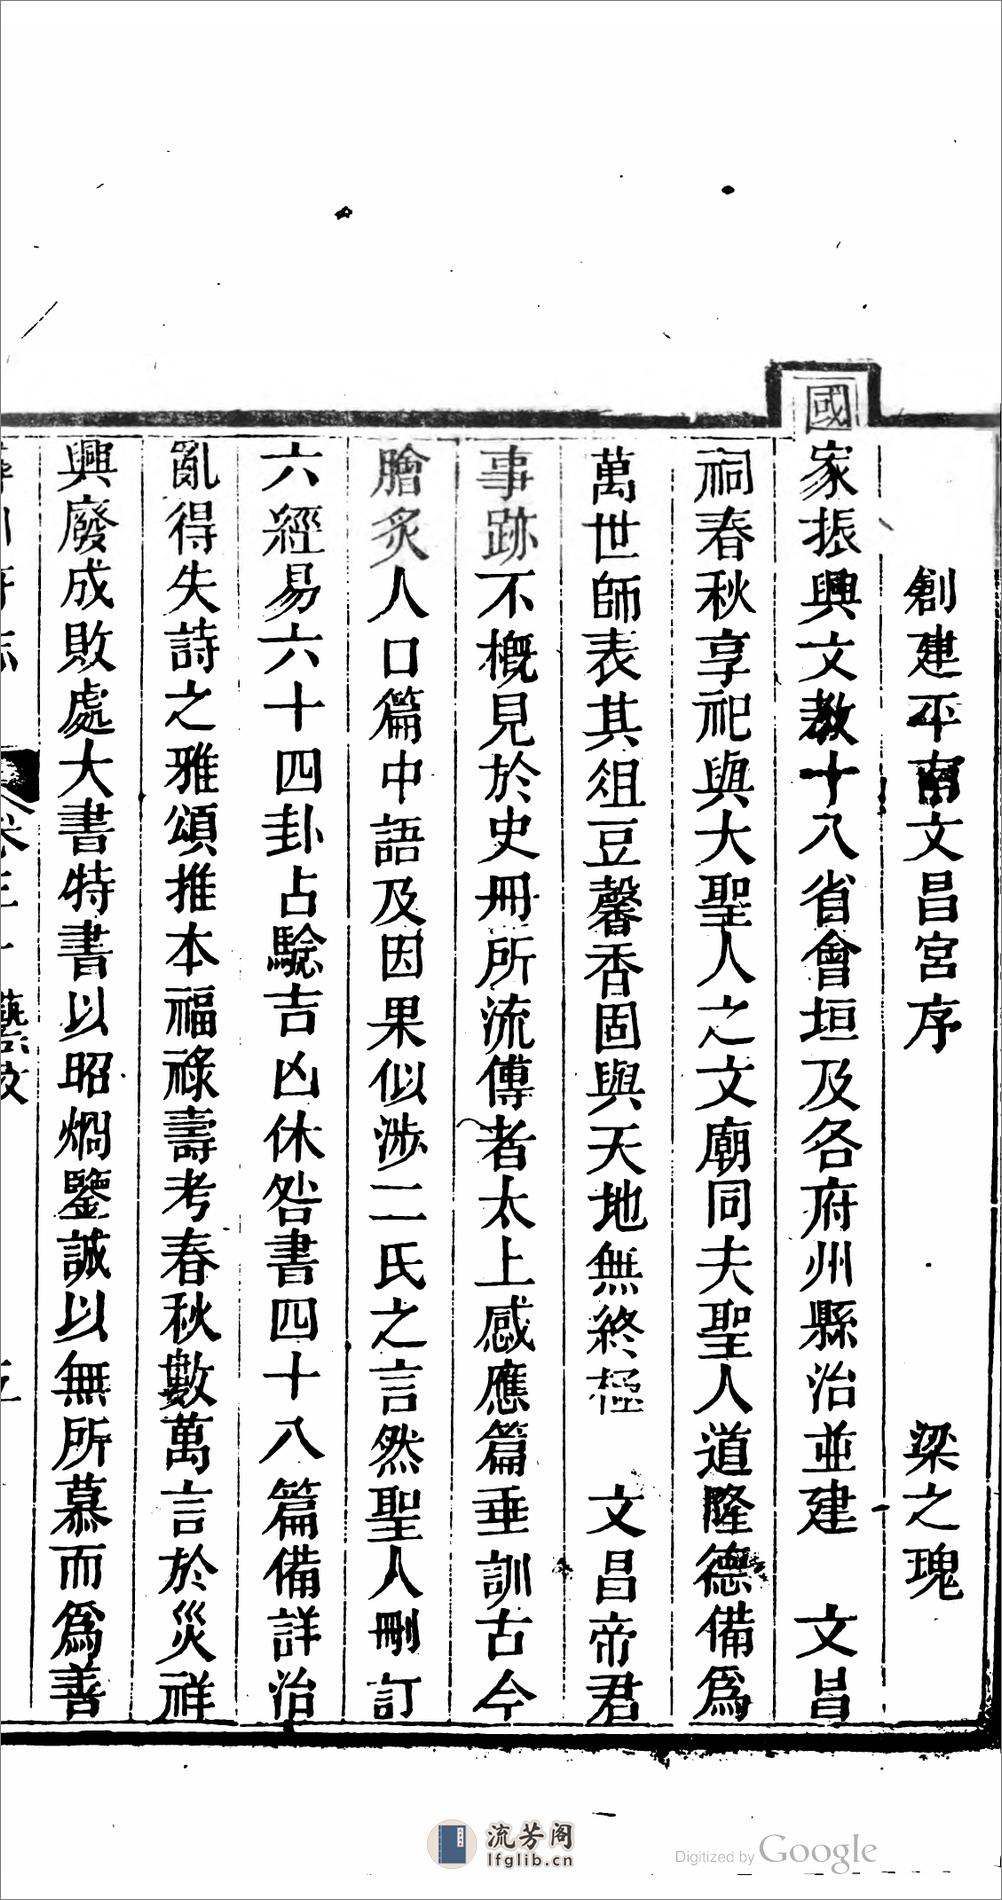 創建平南文昌宮序　梁之瑰
國家振興文教十八省會垣及各府州縣治並建　文昌
祠春秋享祀與大聖人之文廟同夫聖人道隆德備爲
萬世師表其俎豆馨香固與天地無終極　文昌帝君
事跡不概見於史冊所流傳者太上感應篇垂訓古今
膾炙人口篇中語及因果似涉二氏之言然聖人刪訂
六經易六十四卦占驗吉凶休咎書四十八篇備詳治
亂得失詩之雅頌推本福祿壽考春秋數萬言於災祥
興廢成敗處大書特書以昭烱鑒誠以無所慕而爲善
府志
卷三十
藝文
流芳阁
lfglib.cn
Digitized by Google